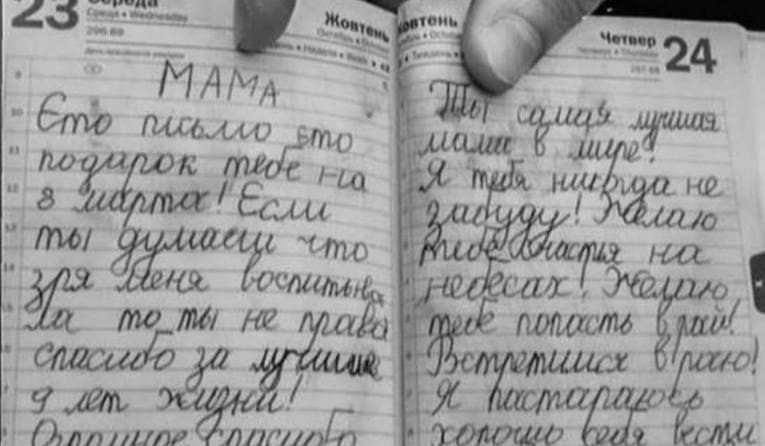 23 Середа
Среда • Wednesday
296-69
Жовтень
МАМА
Єто письмо это
подарок тебе на
8 марта! Если
ты думаеш что
зря меня воспитыва
ла то ты не права
спасибо за лучшие
9 лет жизни!
Огромное спасибо
Жовтень
Четвер 24
Четверг • Thursday
297-68
Ты самая лучшая
мама в мире!
Я тебя никогда не
забуду! Желаю
тебе счастья на
небесах! Желаю
тебе попасть в рай!
Встретимся в раю!
Я пастараюсь
хорошо себя вести